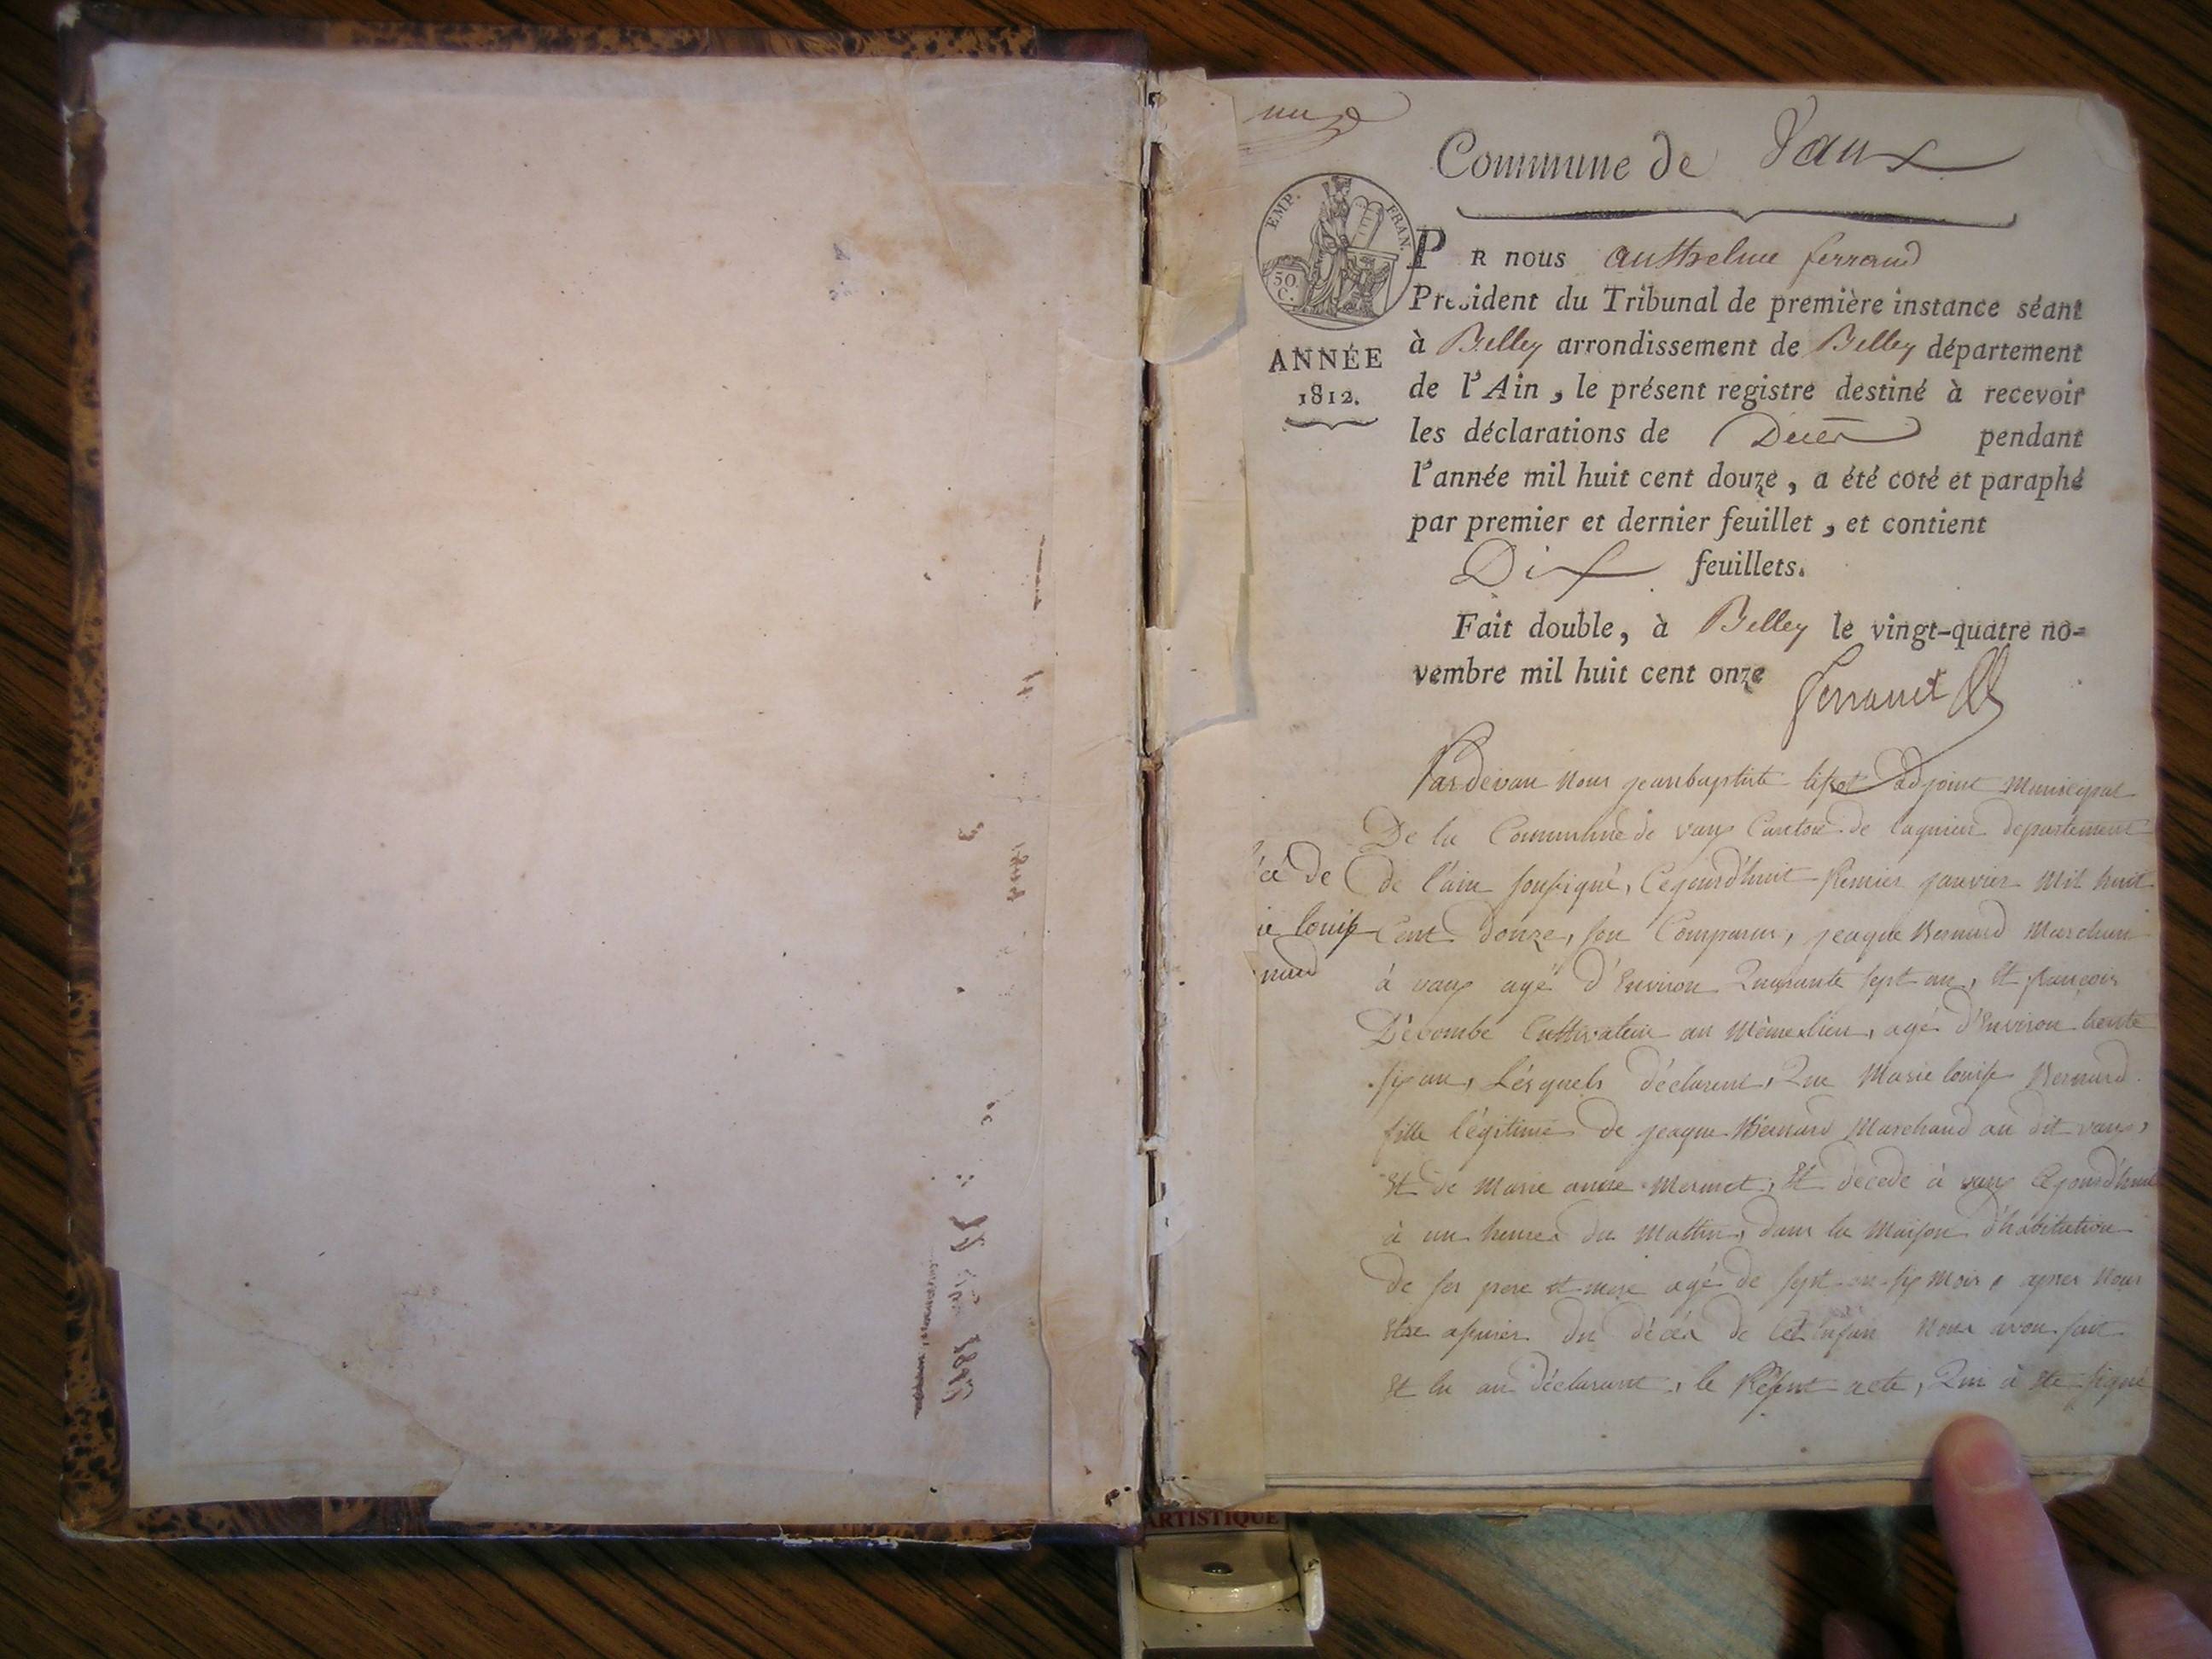 Commune de Vaux
EMP. FRAN.
50 C.
ANNÉE
1812.
P R nous anthelme ferrand
Président du Tribunal de première instance séant
à Belley arrondissement de Belley département
de l'Ain, le présent registre destiné à recevoir
les déclarations de Décès pendant
l'année mil huit cent douze, a été coté et paraphé
par premier et dernier feuillet, et contient
Dix feuillets.
Fait double, à Belley le vingt-quatre no=
vembre mil huit cent onze
Par devan nous jeanbaptiste adjoint Municipal
De la Commune de vaux Canton de lagnieu departement
de l'ain soussigné, Cejourd'huit Premier janvier Mil huit
Cent Douze, son Comparus, jeaque Bernard Marchan
à vaux agé d'Environ Quarante sept an, Et françois
Décombe Cultivateur au Même lieu, agé d'Environ trente
six an, Lésquels déclarent, Que Marie louise Bernard
fille légitime de jeaque Bernard Marchand au dit vaux,
Et de Marie anne Mermet, Et décédé à vaux Cejourd'huit
à un heure du Mattin, dans la Maison d'habitation
de ses pere et mere agé de sept an six Mois, apres Nous
Etre assurés du décéa de Cet enfan Nous avon fait
Et lu au déclarant, le Présent acte, Qui à Eté signé
cé de
ie louise
nard
ARTISTIQUE